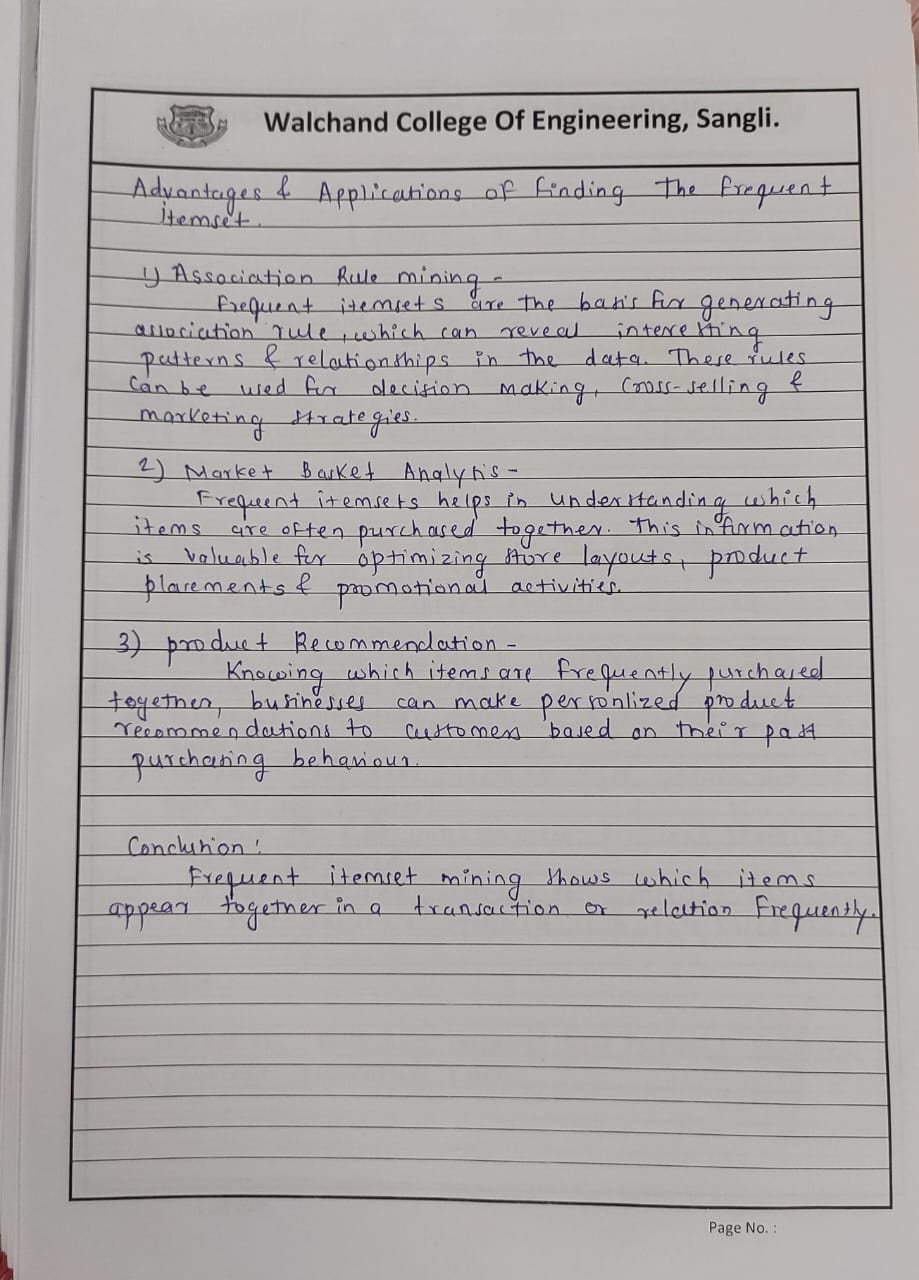 Walchand College Of Engineering, Sangli.
Advantages & Applications of finding the frequent
itemset.
1) Association Rule mining -
frequent itemsets are the basis for generating
association rule, which can reveal interesting
patterns & relationships in the data. These rules
can be used for decision making, cross-selling &
marketing strategies.
2) Market Basket Analysis -
Frequent itemsets helps in understanding which
items are often purchased together. This information
is valuable for optimizing store layouts, product
placements & promotional activities.
3) product Recommendation -
Knowing which items are frequently purchased
together, businesses can make personlized product
recommendations to customers based on their past
purchasing behaviour.
Conclusion :
Frequent itemset mining shows which items
appear together in a transaction or relation frequently.
Page No. :